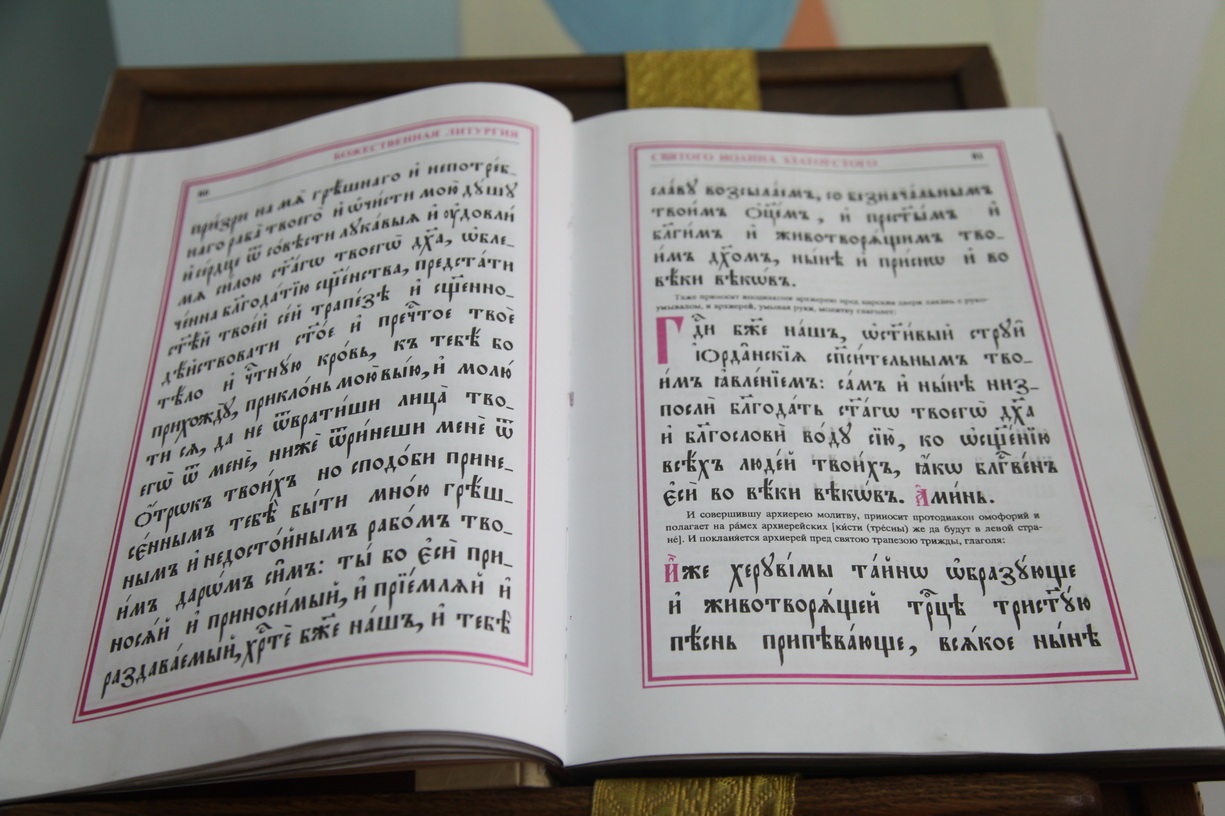 БОЖЕСТВЕННАЯ ЛИТУРГИЯ
при́зри на мѧ̀ грѣ́шнаго и҆ непотре́б-
наго раба̀ твоего̀ и҆ ѡ҆чи́сти мою̀ дꙋ́шꙋ
и҆ се́рдце ѿ со́вѣсти лꙋка́выѧ и҆ ᲂу҆довли́
мѧ си́лою ст҃а́гѡ твоегѡ̀ дх҃а, ѡ҆бле-
че́нна бл҃года́тїю сщ҃е́нства, предста́ти
ст҃ѣ́й твое́й се́й трапе́зѣ и҆ сщ҃енно-
дѣ́йствовати ст҃о́е и҆ пречⷭ҇тое твоѐ
тѣ́ло и҆ чⷭ҇тнꙋ́ю кро́вь, къ тебѣ́ бо
прихождꙋ̀, прикло́нь мою̀ вы́ю, и҆ молю́
ти сѧ, да не ѿврати́ши лица̀ тво-
егѡ̀ ѿ менѐ, нижѐ ѿри́неши менѐ ѿ
ѻ҆́трѡкъ твои́хъ но сподо́би прине-
сє́ннымъ тебѣ̀ бы́ти мно́ю грѣ́ш-
нымъ и҆ недосто́йнымъ рабо́мъ тво-
и́мъ дарѡ́мъ си̑мъ: ты́ бо є҆сѝ при-
носѧ́й и҆ приноси́мый, и҆ прїе́млѧй и҆
раздава́емый, хрⷭ҇тѐ бж҃е на́шъ, и҆ тебѣ̀
СВЯТОГО ИОАННА ЗЛАТОУСТОГО
сла́вꙋ возсыла́емъ, со безнача́льнымъ
твои́мъ ѻ҆ц҃е́мъ, и҆ прест҃ы́мъ и҆
бл҃ги́мъ и҆ животворѧ́щимъ тво-
и́мъ дх҃омъ, ны́нѣ и҆ при́снѡ и҆ во
вѣ́ки вѣкѡ́въ.
Таже приносят иподиаконы архиерею пред царския двери лаха́нь с руко-
умывалом, и архиерей, умывая руки, молитву глаголет:
Гдⷭ҇и бж҃е на́шъ, ѡ҆ст҃и́вый стрꙋи̑
і҆ѻрда̑нскїѧ сп҃си́тельнымъ тво-
и́мъ ꙗ҆вле́нїемъ: са́мъ и҆ ны́нѣ низ-
послѝ бл҃года́ть ст҃а́гѡ твоегѡ̀ дх҃а
и҆ бл҃гословѝ во́дꙋ сїю̀, ко ѡ҆сщ҃е́нїю
всѣ́хъ люде́й твои́хъ, ꙗ҆́кѡ бл҃гве́нъ
є҆сѝ во вѣ́ки вѣкѡ́въ. А҆ми́нь.
И совершившу архиерею молитву, приносит протодиакон омофорий и
полагает на ра́мех архиерейских [ки́сти (тре́сны) же да будут в левой стра-
не́]. И покланяется архиерей пред святою трапезою трижды, глаголя:
И҆̀же херꙋві́мы та́йнѡ ѡ҆бразꙋ́юще
и҆ животворѧ́щей трⷪ҇цѣ тристꙋ́ю
пѣ́снь припѣва́юще, всѧ́кое ны́нѣ